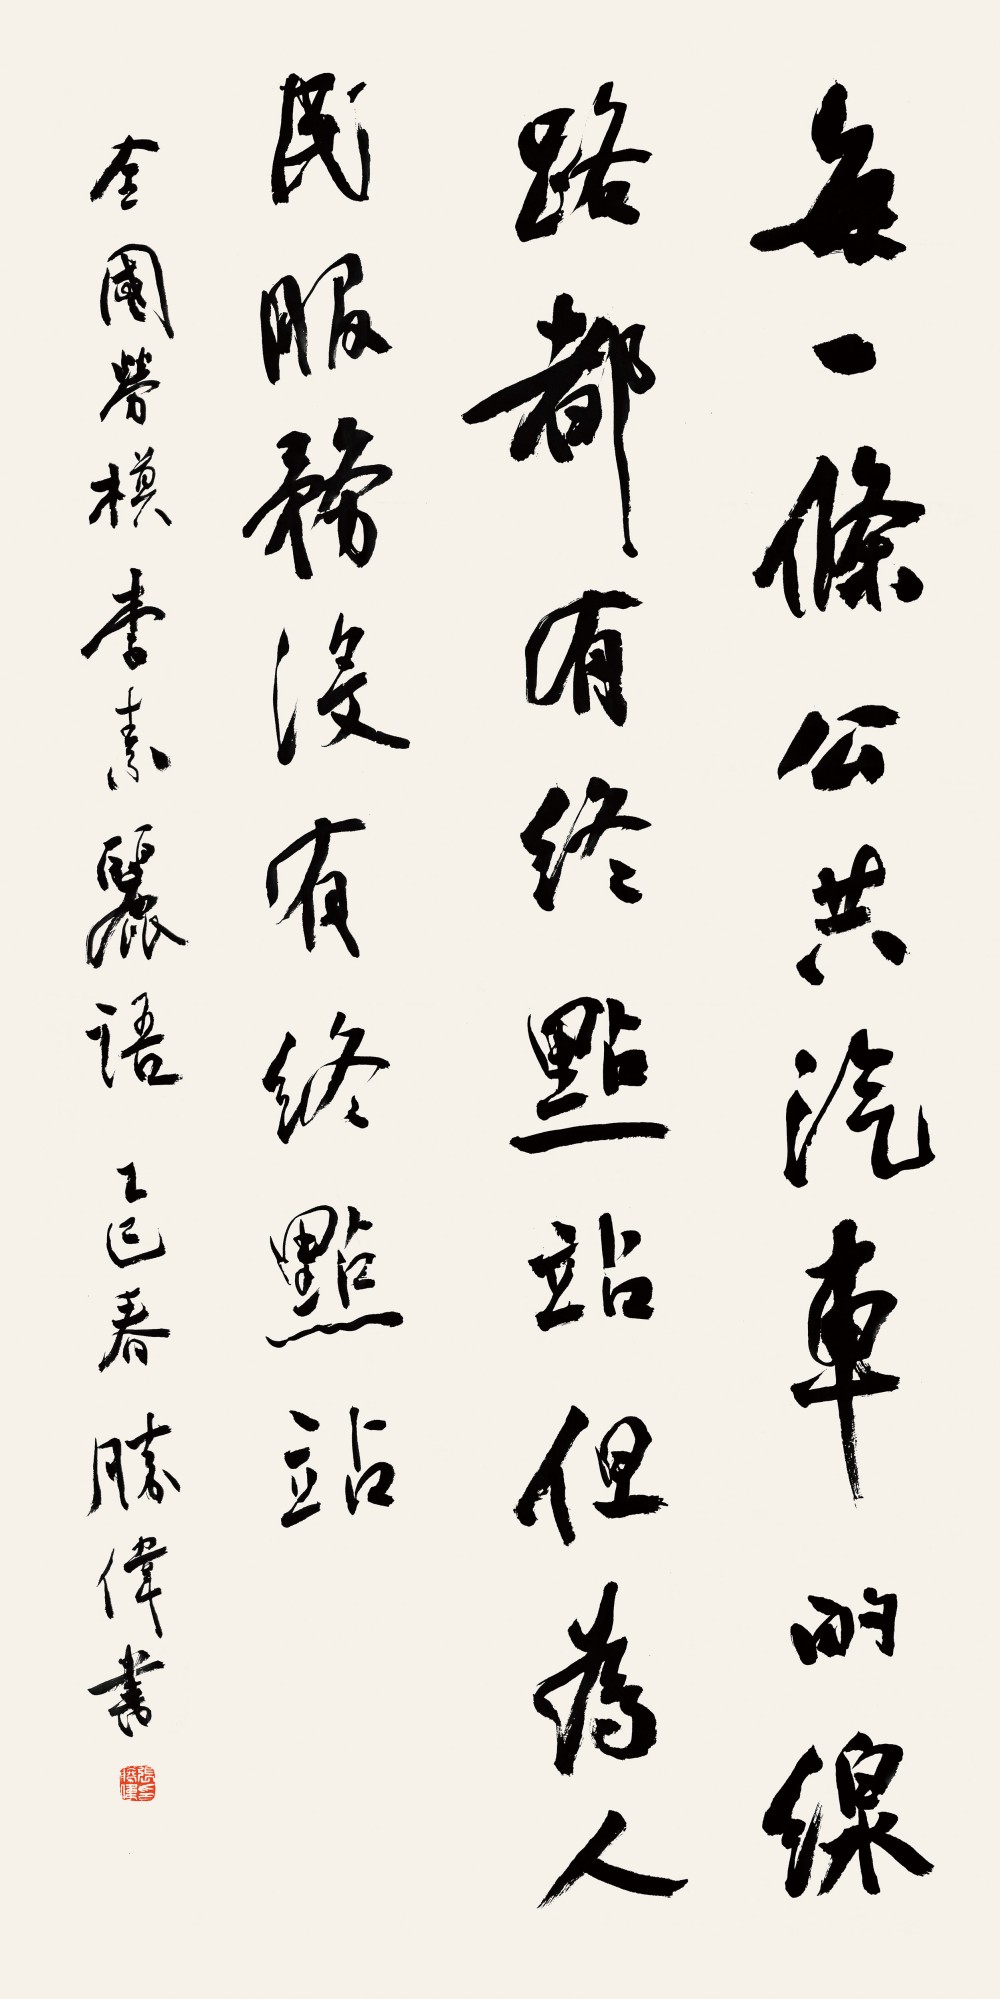 每一條公共汽車的線
路都有終點站但為人
民服務沒有終點站
全國勞模李素麗語 乙巳春 勝偉書